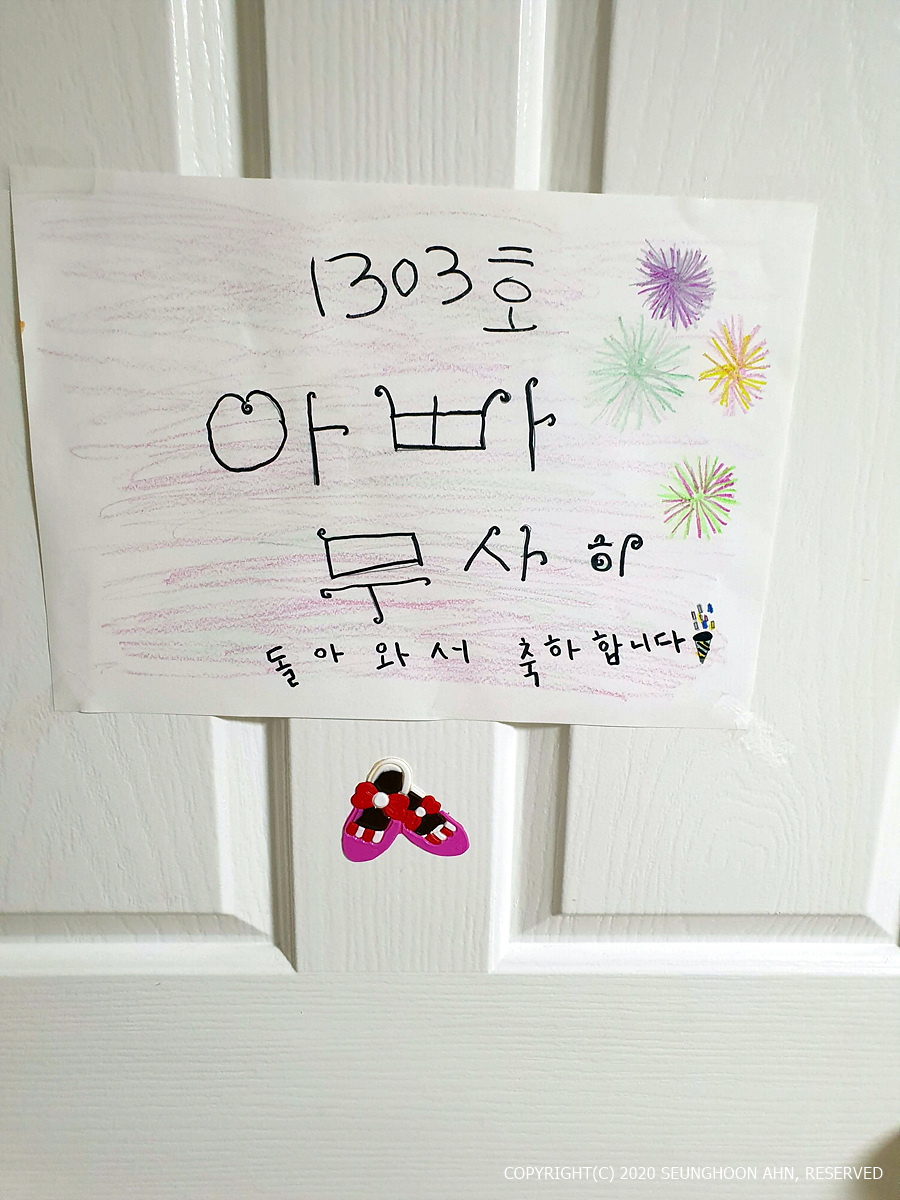 1303호
아빠
무사히
돌아와서 축하합니다
COPYRIGHT(C) 2020 SEUNGHOON AHN, RESERVED